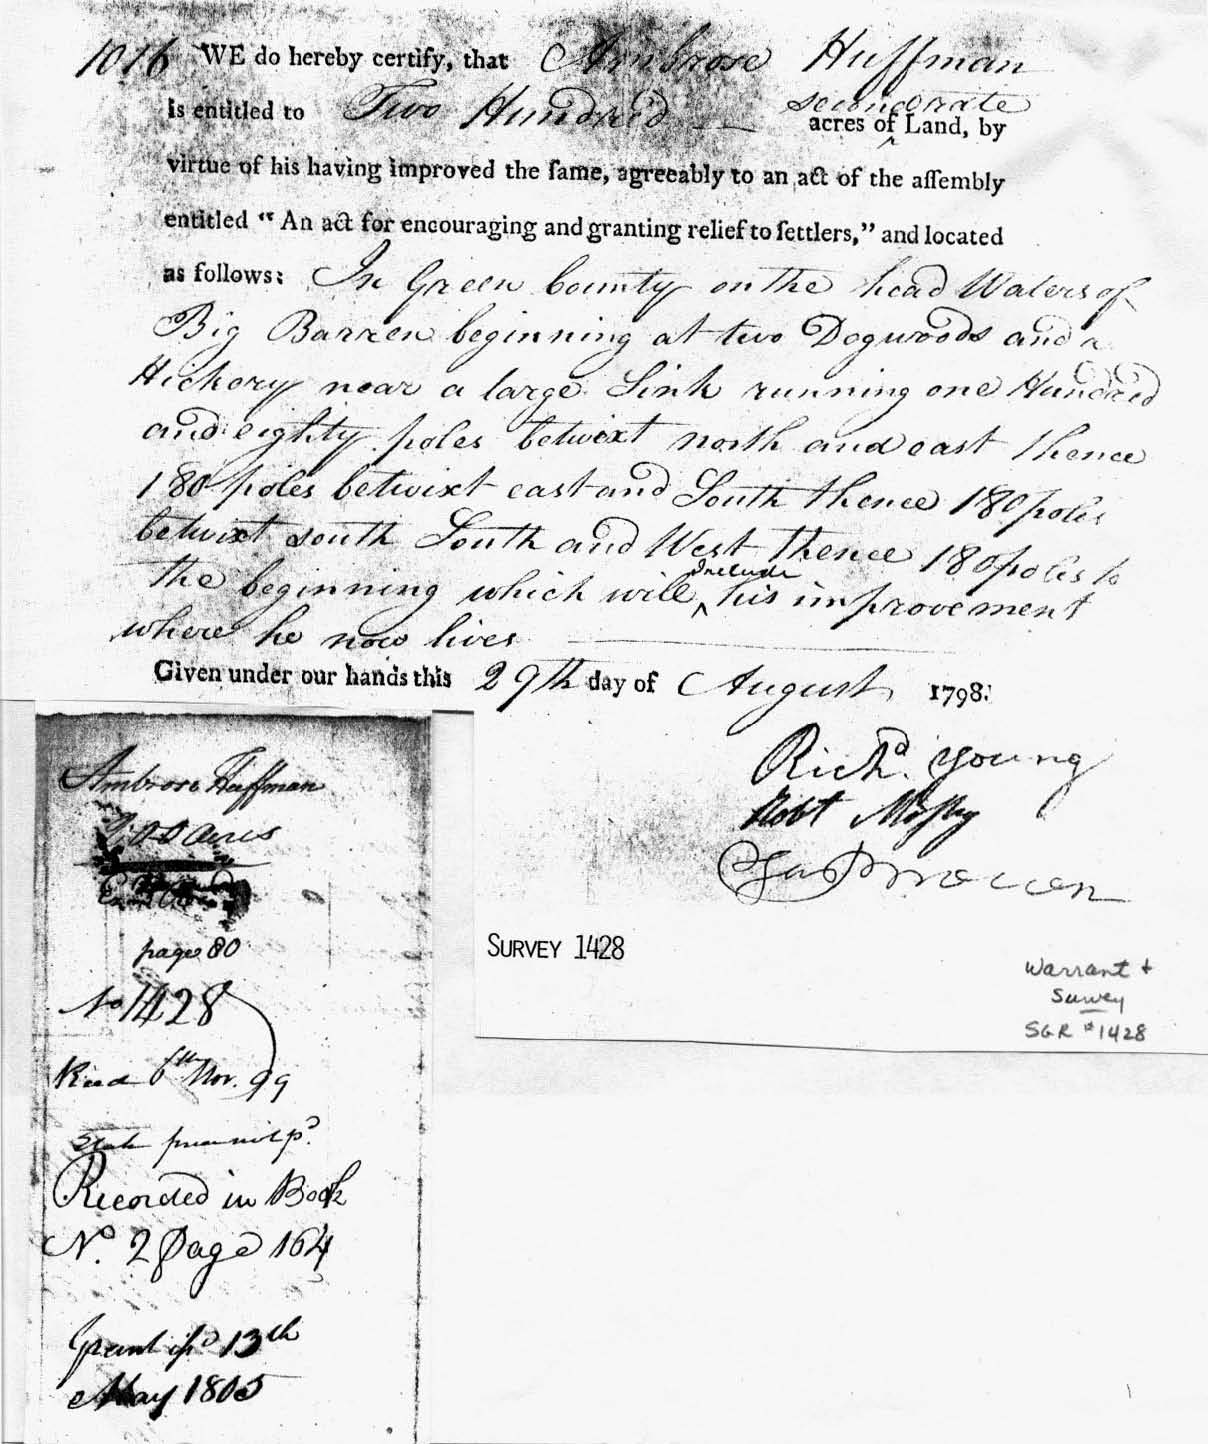 1016 WE do hereby certify, that Ambrose Huffman
is entitled to Two Hundred — second rate
acres of ^ Land, by
virtue of his having improved the ſame, agreeably to an act of the aſſembly
entitled “An act for encouraging and granting relief to ſettlers,” and located
as follows: In Green County on the head Waters of
Big Barren beginning at two Dogwoods and a
Hickory near a large Sink running one Hundred
and eighty poles betwixt north and east thence
180 poles betwixt east and South thence 180 poles
betwixt south South and West thence 180 poles to
the beginning which will ^ Include his improvement
where he now lives
Given under our hands this 29th day of August 1798.
Richd. Young
Robt Mosby
SURVEY 1428
Warrant +
Survey
SGR #1428
Ambrose Huffman
200 acres
page 80
No 1428
Recd 6th Nov. 99
State
Recorded in Book
No. 2 Page 164
Grant isd 13th
May 1805